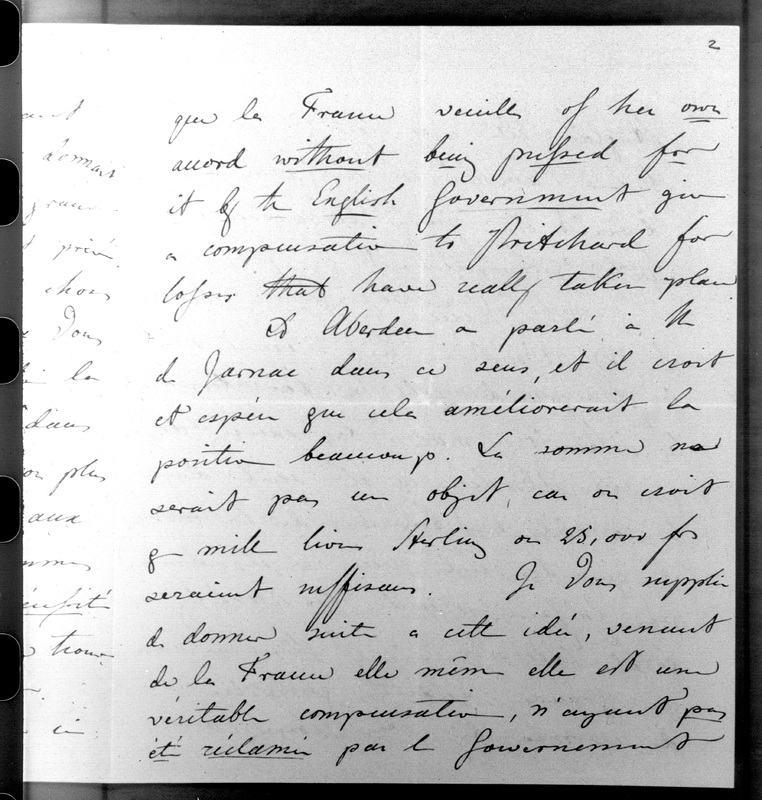 2
que la France veuille of her own
accord without being pressed for
it by the English Government give
a compensation to Pritchard for
losses that have really taken place
Ld Aberdeen a parlé à Mr
de Jarnac dans ce sens, et il croit
et espère que cela améliorerait la
position beaucoup. La somme ne
serait pas un objet, car on croit
q mille livres Sterling ou 25,000 frs
seraient suffisans. Je Vous supplie
de donner suite a cette idée, venant
de la France elle même elle est une
véritable compensation, n'ayant pas
été réclamée par le Gouvernement
donnais
chose
Vous
la
dans
plus
aux